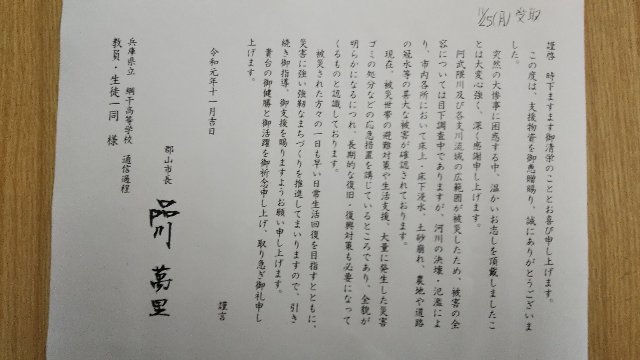 11/25(月)受取
謹啓 時下ますます御清栄のこととお喜び申し上げます。
この度は、支援物資を御恵贈賜り、誠にありがとうございま
した。
突然の大惨事に困惑する中、温かいお志しを頂戴しましたこ
とは大変心強く、深く感謝申し上げます。
阿武隈川及び各支川流域の広範囲が被災したため、被害の全
容については目下調査中でありますが、河川の決壊・氾濫によ
り、市内各所において床上・床下浸水、土砂崩れ、農地や道路
の冠水等の甚大な被害が確認されております。
現在、被災世帯の避難対策や生活支援、大量に発生した災害
ゴミの処分などの応急措置を講じているところであり、全貌が
明らかになるにつれ、長期的な復旧・復興対策も必要になって
くるものと認識しております。
被災された方々の一日も早い日常生活回復を目指すとともに、
災害に強い強靭なまちづくりを推進してまいりますので、引き
続き御指導、御支援を賜りますようお願い申し上げます。
貴台の御健勝と御活躍を御祈念申し上げ、取り急ぎ御礼申し
上げます。
謹言
令和元年十一月吉日
郡山市長 品川 萬里
兵庫県立 網干高等学校 通信過程
教員・生徒一同 様